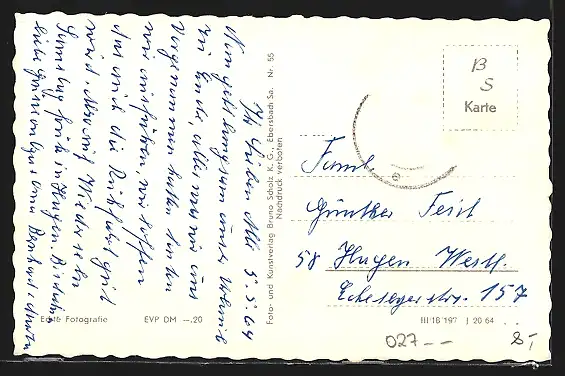 Ihr Lieben Alle 5.5.64
Nun geht langsam unser Urlaub
zu Ende, alles was wir uns
vorgenommen hatten konnten
wir ausführen, wir hoffen
das auch die Rückfahrt gut
wird. Also auf Wiedersehn
Samstag früh in Hagen. Bis dahin
liebe Grüsse
Foto- und Kunstverlag Bruno Scholz K. G., Ebersbach Sa. Nr. 55
Nachdruck verboten
Echte Fotografie EVP DM —.20
B
S
Karte
Faml.
Günther
58 Hagen Westf.
157
III 18 197 J 20 64
027-- 8,-